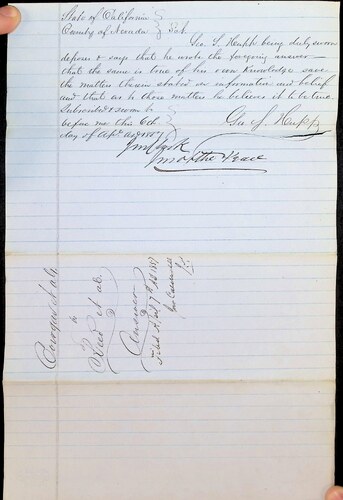 State of California }
County of Nevada } SS.
Geo. S. Hupp being duly sworn
deposes & says that he wrote the foregoing answer—
that the same is true of his own knowledge save
the matters therein stated on information and belief
and that as to those matters he believes it to be true
Subscribed & sworn to } Geo. S. Hupp
before me this 6th }
day of Apl. AD 1857 }
J of the Peace
Cowgar et als
vs
Reed et al.
Answer
Filed April 7th 1857